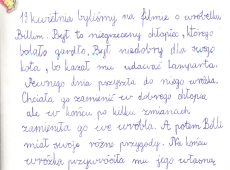 19 kwietnia byliśmy na filmie o wróbelku
Billim. Był to niegrzeczny chłopiec, którego
bolało gardło. Był niedobry dla swego
kota, bo kazał mu udawać lamparta.
Pewnego dnia przyszła do niego wróżka.
Chciała go zamienić w dobrego chłopca
ale w końcu po kilku zmianach
zamieniła go we wróbla. A potem Billi
miał swoje różne przygody. Na końcu
wróżka przywróciła mu jego własną